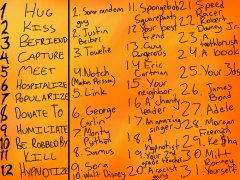 1 HUG
2 KISS
3 BEFRIEND
4 CAPTURE
5 MEET
6 HOSPITALIZE
7 POPULARIZE
8 DONATE TO
9 HUMILIATE
10 BE ROBBED BY
11 KILL
12 HYPNOTIZE
1. Some random
guy
2. Justin
Beiber
3. Towelie
4. Notch
5. Link
6. George
Carlin
7. Monty
Python
8. Samus
9. Sora
10. Walt Disney
11. Spongebob
Squarepants
12. Your best
friend
13. Guy
Dangerous
14. Eric
Cartman
15. Your
neighbor
16. A charity
leader
17. An amazing
singer
18. A
hypnotist
19. Your
great teacher
20. A random
guy's
21. Speed
Racer
22. Robert
Downey Jr.
23. A
toothbrush
24. A book
25. Your Dad
26. James
Bond
27. Adele
28. Morgan
Freeman
29. Ke$ha
30. Mitt
Romney
31. Yourself